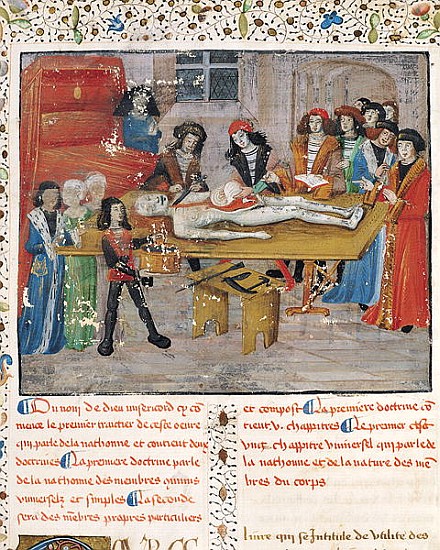 Du nom de dieu misericord cy cõ
mence le premier traictie de ceste oeure
qui parle de la nathomie et contient deux
doctrines La premiere doctrine parle
de la nathomie des membres qmuns
vniuerselz et simples La seconde
sera des mẽbres propres particuliers
et compost La premiere doctrine cõ
tient .v. chappitres Le premier est
vng chappitre vniuersel qui parle de
la nathomie et de la nature des mẽ
bres du corps
liure qui se Intitule de vtilite des